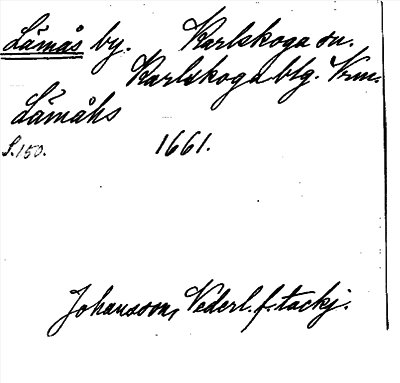 Lämås by. Karlskoga sn.
Karlskoga blg. Vrm.
Lämåhs
S. 150. 1661.
Johansson, Vederl. f. tackj.